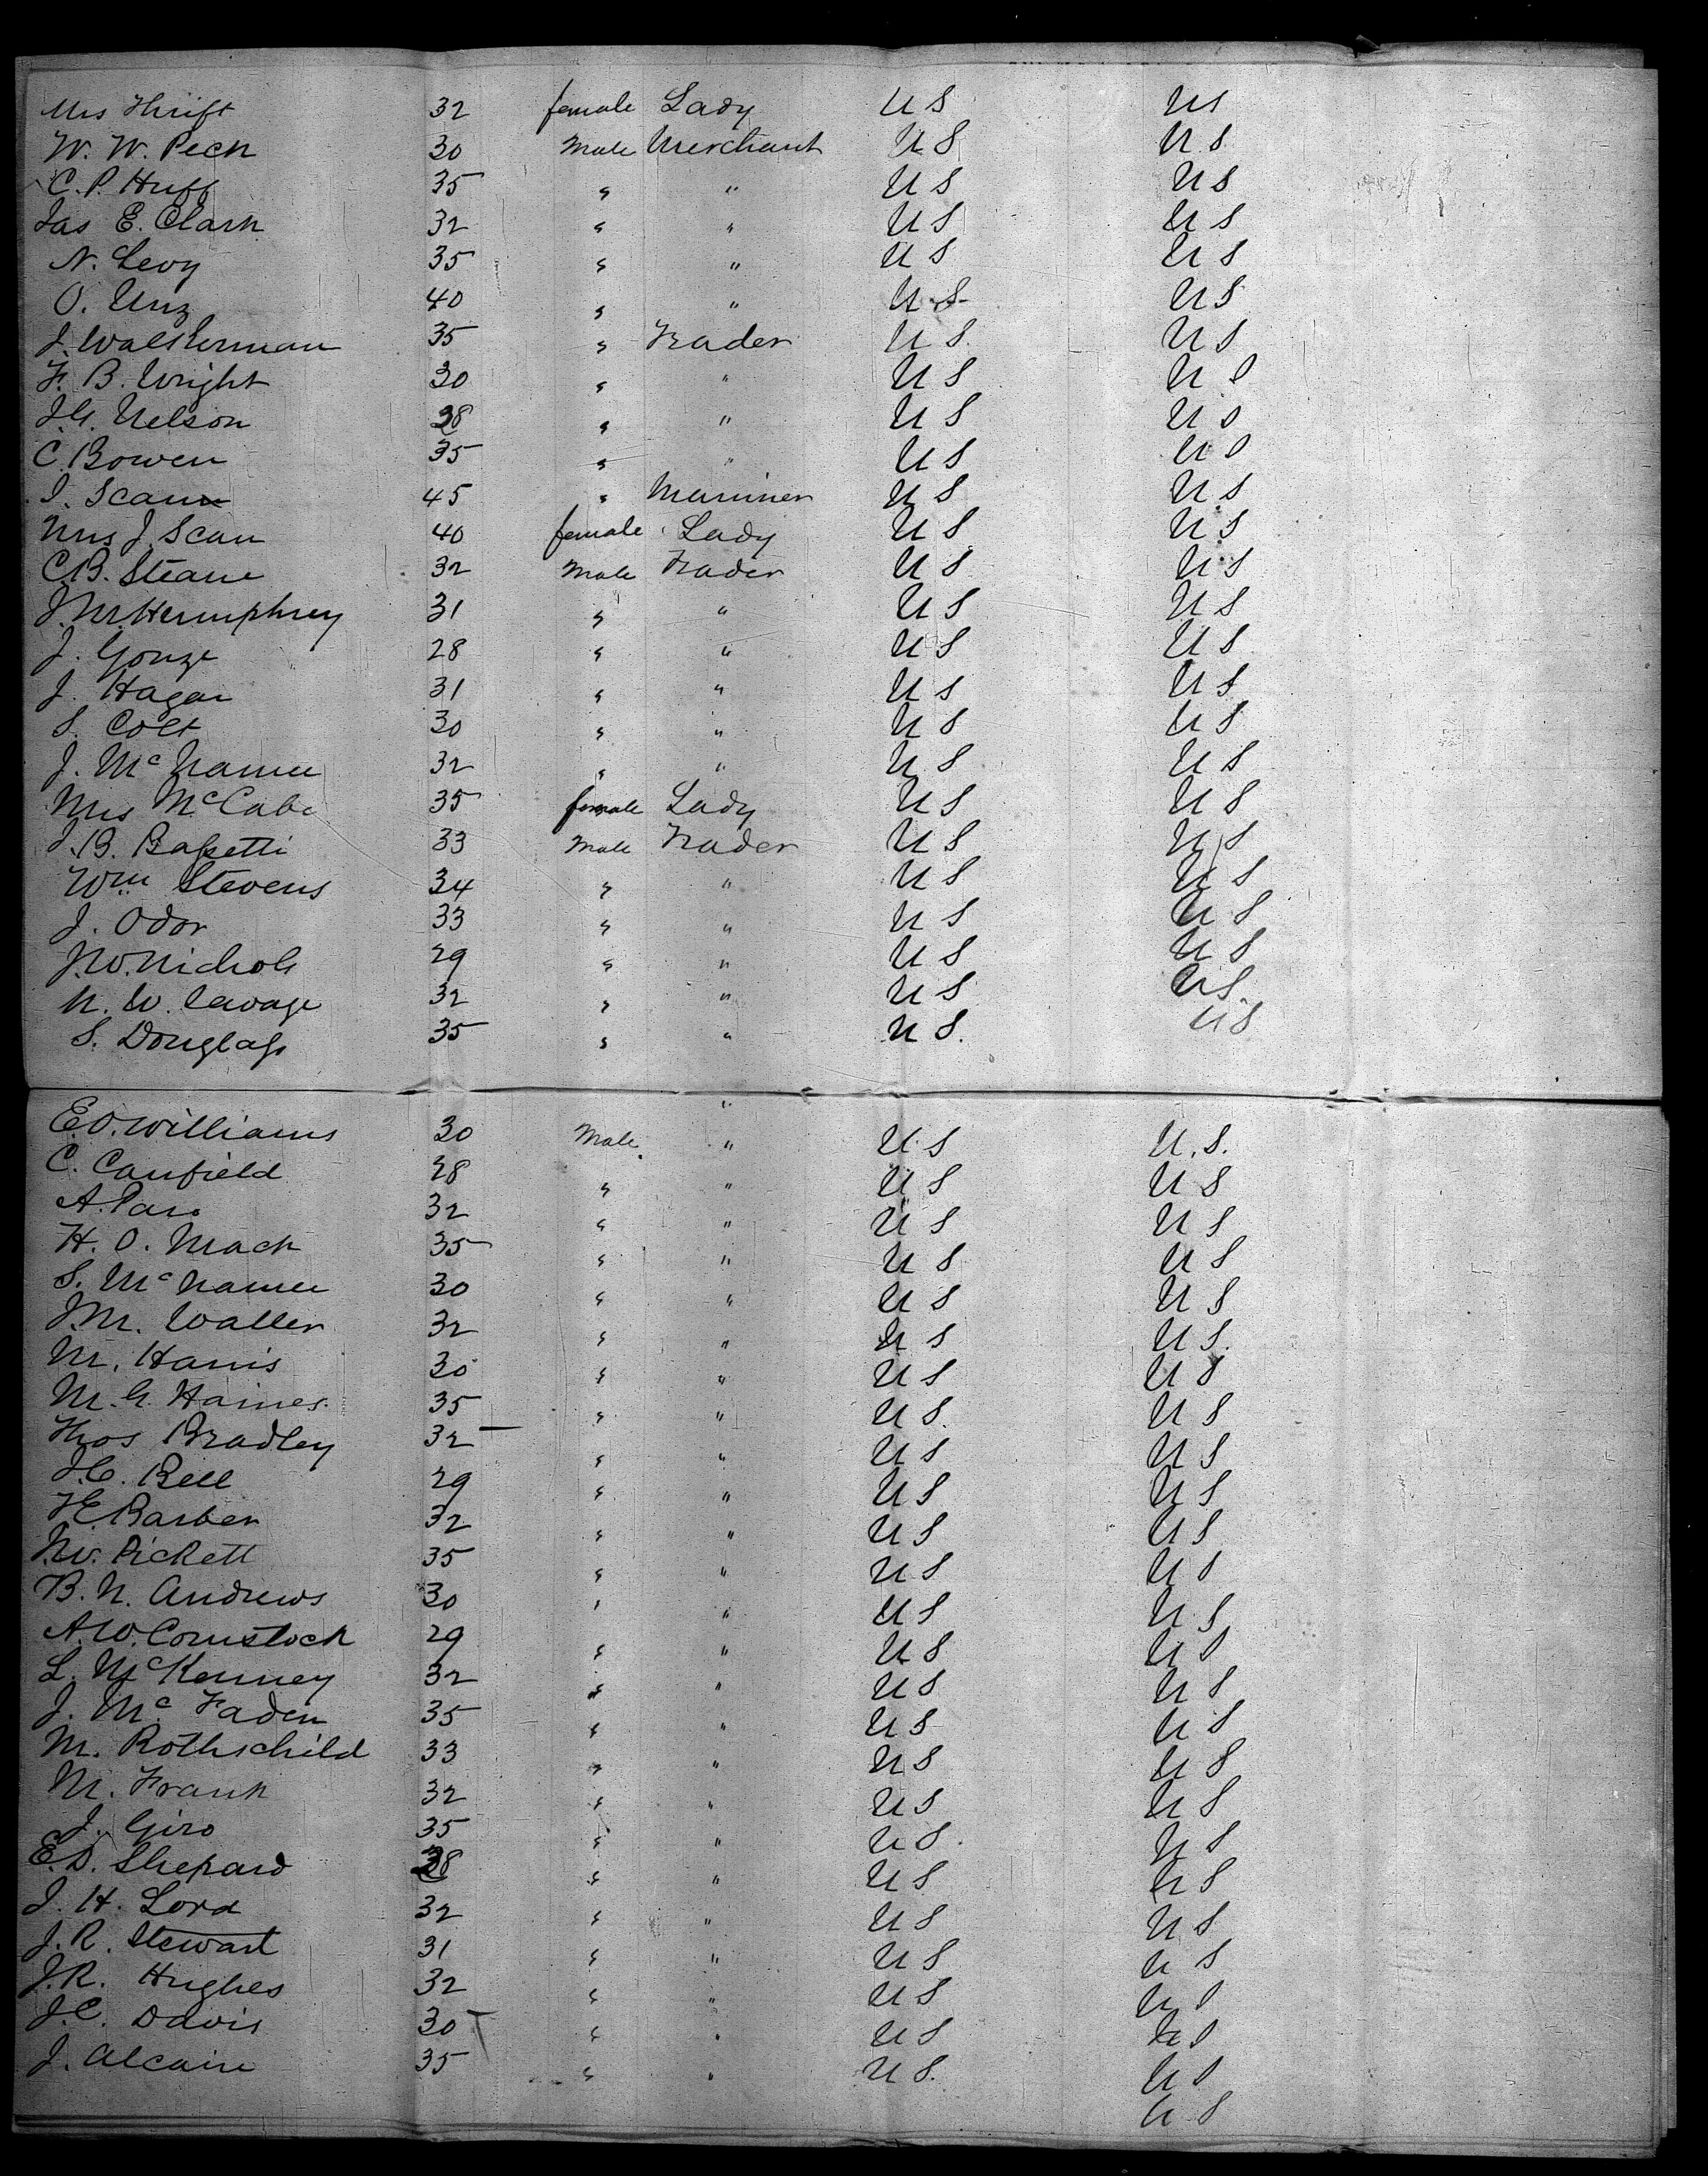 Mrs Thrift 32 female Lady U S U S
W. W. Peck 30 Male Merchant U S U S
C. P. Huff 35 " " U S U S
Jas E. Clark 32 " " U S U S
N. Levy 35 " " U S U S
O. Unz 40 " " U S U S
J. Walsherman 35 " Trader U S U S
F. B. Wright 30 " " U S U S
J. G. Nelson 38 " " U S U S
C. Bowen 35 " " U S U S
J. Scann 45 " Mariner U S U S
Mrs J. Scan 40 female Lady U S U S
C. B. Steane 32 Male Trader U S U S
J. M. Humphrey 31 " " U S U S
J. Gonze 28 " " U S U S
J. Hagan 31 " " U S U S
S. Colt 30 " " U S U S
J. McNamee 32 " " U S U S
Mrs McCabe 35 female Lady U S U S
J. B. Bassetti 33 Male Trader U S U S
Wm Stevens 34 " " U S U S
J. Odor 33 " " U S U S
J. W. Nichols 29 " " U S U S
N. W. Savage 32 " " U S U S
S. Douglass 35 " " U S. U S
"
E. O. Williams 30 Male " U S U. S.
C. Canfield 28 " " U S U S
A. Paro 32 " " U S U S
H. O. Mack 35 " " U S U S
S. McNamee 30 " " U S U S
J. M. Waller 32 " " U S U S.
M. Harris 30 " " U S U S
M. G. Haines 35 " " U S. U S
Thos Bradley 32 " " U S U S
J. C. Bell 29 " " U S U S
F. E. Barber 32 " " U S U S
Pickett 35 " " U S U S
B. N. Andrews 30 " " U S U S
A. W. Comstock 29 " " U S U S
L. McKenney 32 " " U S U S
J. McFaden 35 " " U S U S
M. Rothschild 33 " " U S U S
M. Frank 32 " " U S U S
J. Giro 35 " " U S. U S
E. D. Shepard 38 " " U S U S
J. H. Lord 32 " " U S U S
J. R. Stewart 31 " " U S U S
J. R. Hughes 32 " " U S U S
J. C. Davis 30 " " U S U S
J. Alcaire 35 " " U S. U S
U S